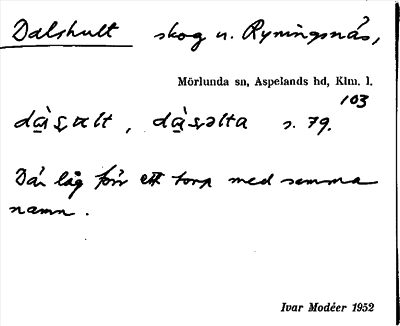 Dalshult skog u. Ryningsnäs,
Mörlunda sn, Aspelands hd, Klm. l.
103
dàʂɷlt, dàʂəlta s. 79.
Där låg förr ett torp med samma
namn.
Ivar Modéer 1952